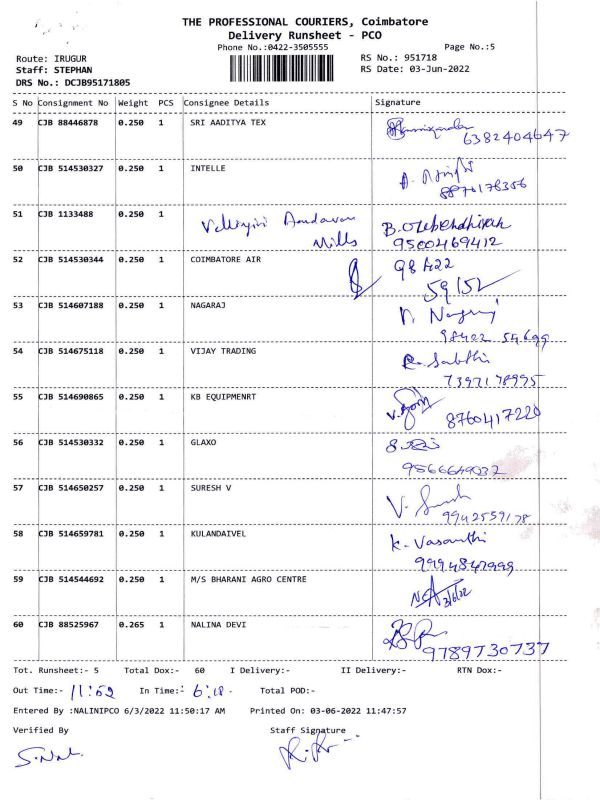 THE PROFESSIONAL COURIERS, Coimbatore
Delivery Runsheet - PCO
Phone No.:0422-3505555
Page No.:5
Route: IRUGUR
RS No.: 951718
Staff: STEPHAN
RS Date: 03-Jun-2022
DRS No.: DCJB95171805
S No Consignment No Weight PCS Consignee Details Signature
49 CJB 88446878 0.250 1 SRI AADITYA TEX
6382404647
50 CJB 514530327 0.250 1 INTELLE
8870178356
51 CJB 1133488 0.250 1 Velliyiri Andavar
Mills
9500469412
52 CJB 514530344 0.250 1 COIMBATORE AIR 98422
59152
53 CJB 514607188 0.250 1 NAGARAJ
98422 54699
54 CJB 514675118 0.250 1 VIJAY TRADING R. Sakthi
7397178995
55 CJB 514690865 0.250 1 KB EQUIPMENRT
8760417220
56 CJB 514530332 0.250 1 GLAXO
9566649032
57 CJB 514650257 0.250 1 SURESH V
9942559178
58 CJB 514659781 0.250 1 KULANDAIVEL K. Vasanthi
9994847999
59 CJB 514544692 0.250 1 M/S BHARANI AGRO CENTRE
3/6/22
60 CJB 88525967 0.265 1 NALINA DEVI
9789730737
Tot. Runsheet:- 5 Total Dox:- 60 I Delivery:- II Delivery:- RTN Dox:-
Out Time:- 11:52 In Time:- 6:18 Total POD:-
Entered By :NALINIPCO 6/3/2022 11:50:17 AM Printed On: 03-06-2022 11:47:57
Verified By Staff Signature